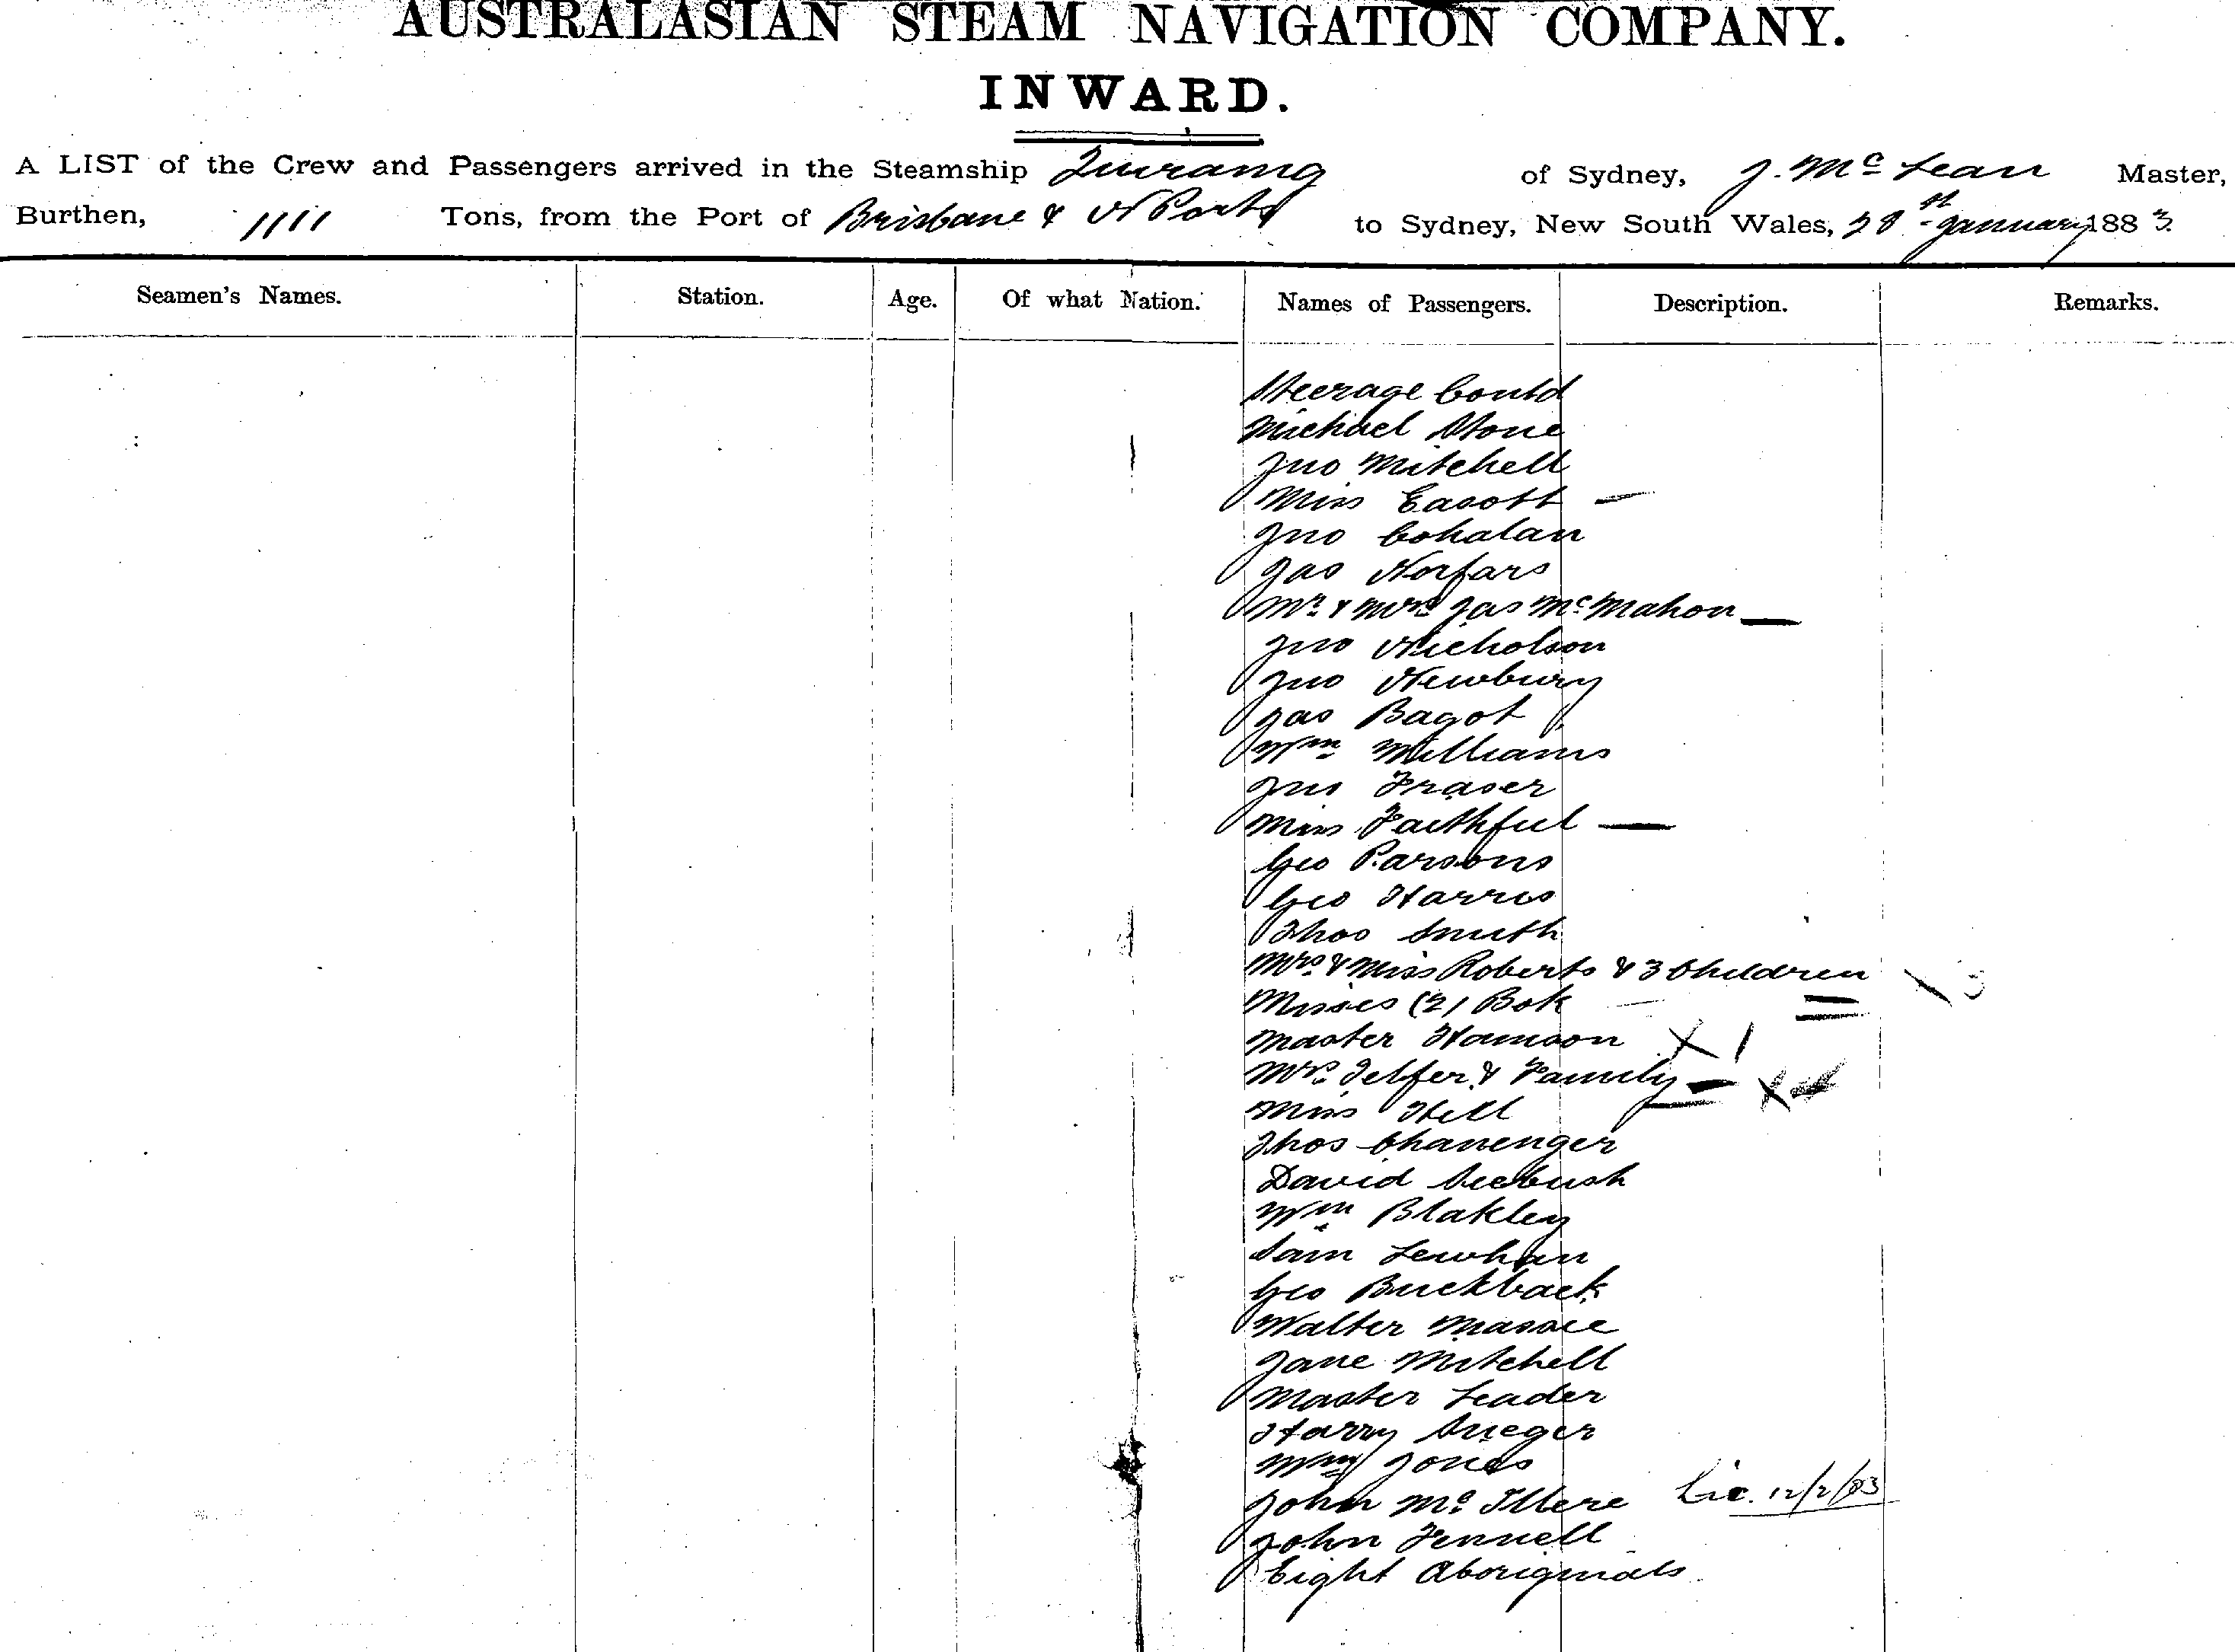 AUSTRALASIAN STEAM NAVIGATION COMPANY.
INWARD.
A LIST of the Crew and Passengers arrived in the Steamship of Sydney, J. McLean Master,
Burthen, 1111 Tons, from the Port of Brisbane & N Ports to Sydney, New South Wales, 28th January 1883
Seamen's Names. Station. Age. Of what Nation. Names of Passengers. Description. Remarks.
Steerage Contd
Michael Stone
Jno Mitchell
Miss Easott
Jno Cohalan
Jas Norfars
Mr & Mrs Jas McMahon
Jno Nicholson
Jno Newbury
Jas Bagot
Wm Williams
Jno Fraser
Miss Faithful
Geo Parsons
Geo Harris
Thos Smith
Mrs & Miss Roberts & 3 Children
Misses (2) Bok
Master X 1
Mrs Telfer & Family
Miss Hill
Thos
David Seebush
Wm Blakley
Sam Lewhan
Geo Buckback
Walter Massie
Jane Mitchell
Master Leader
Harry
Wm Jones
John Mc 12/2/83
John Fennell
Eight Aboriginals